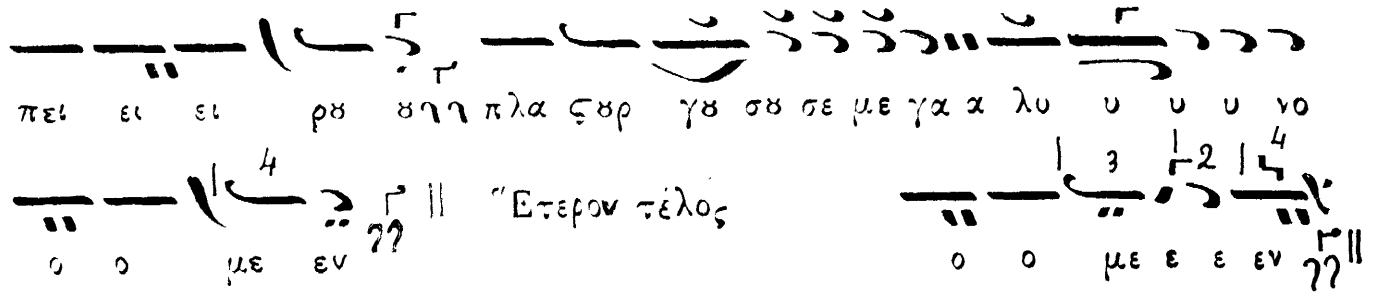 πει ει ει ρȣ ȣ πλα ςȣρ γȣ σȣ σε με γα α λυ υ υ υ νο
4
ο ο με εν
"Ετερον τέλος
3 2 4
ο ο με ε ε εν